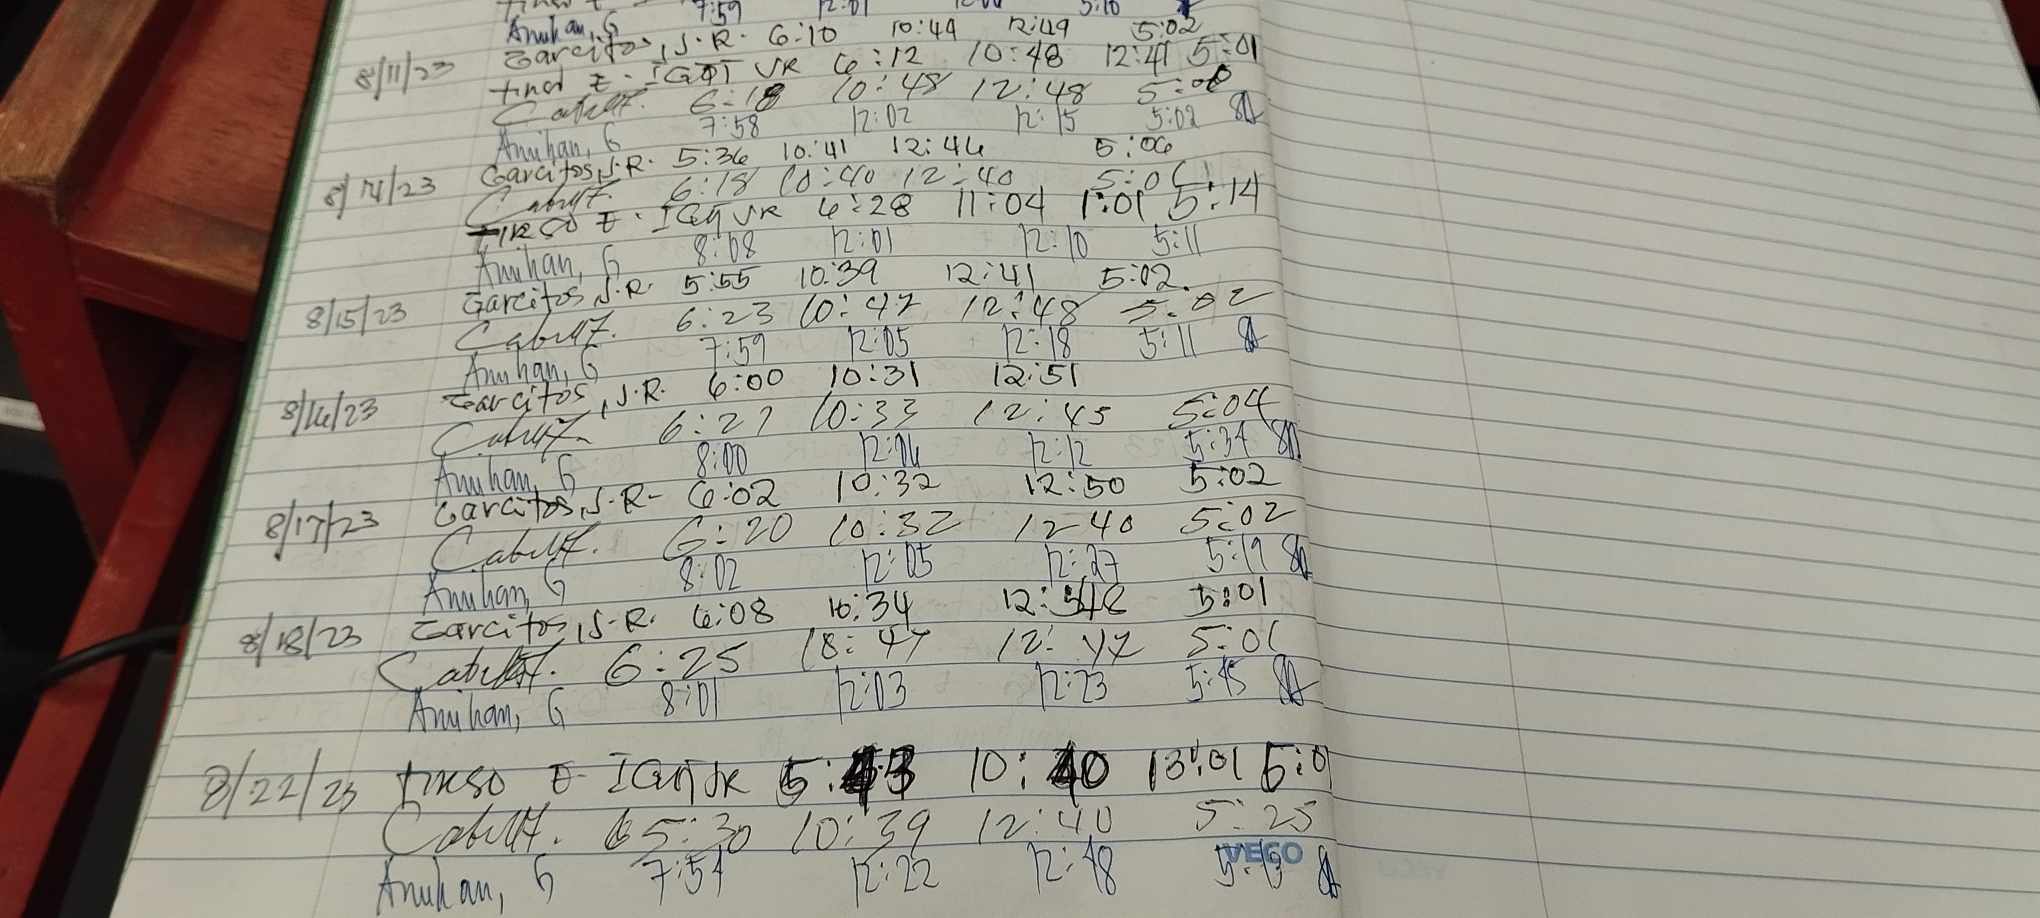 7:59 12:01 5:10
Anuhan, G
8/11/23 Garcitos, J.R. 6:10 10:49 12:49 5:02
E. IGOT JR 6:12 10:48 12:41 5:01
6:18 10:48 12:48
Anuhan, G 7:58 12:02 12:15 5:02
8/14/23 Garcitos, J.R. 5:36 10:41 12:46 5:06
6:18 10:40 12:40
TIRSO E. IGOT JR 6:28 11:04 1:01 5:14
Anuhan, G 8:08 12:01 12:10 5:11
8/15/23 Garcitos, J.R. 5:55 10:39 12:41 5:02
6:23 10:47 12:48 5:02
Anuhan, G 7:59 12:05 12:18 5:11
8/16/23 Garcitos, J.R. 6:00 10:31 12:51
6:27 10:33 12:45 5:04
Anuhan, G 8:00 12:04 12:12 5:34
8/17/23 Garcitos, J.R- 6:02 10:32 12:50 5:02
6:20 10:32 12-40 5:02
Anuhan, G 8:02 12:05 12:27 5:19
8/18/23 Garcitos, J.R. 6:08 10:34 5:01
6:25 12:47
Anuhan, G 8:01 12:03 12:23 5:45
8/22/23 TIRSO E. IGOT JR 10:40 13:01 5:01
5:30 10:39 12:40 5:25
VECO
Anuhan, G 7:54 12:22 12:48